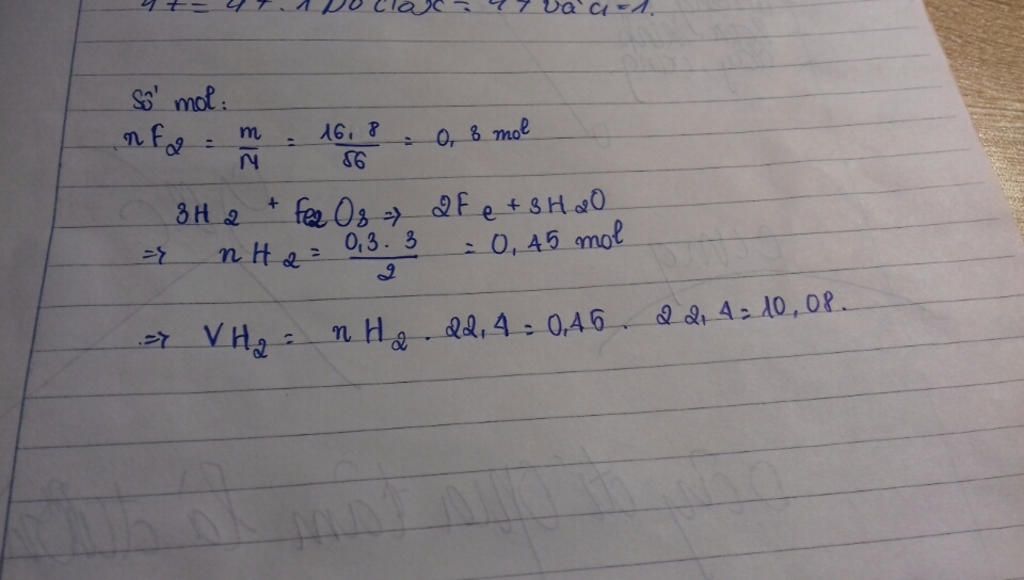 Số mol:
nF2 = m/M = 16,8/56 = 0,3 mol
3H2 + Fe2O3 => 2Fe + 3H2O
=> nH2 = 0,3.3/2 = 0,45 mol
=> VH2 = nH2 . 22,4 = 0,45 . 22,4 = 10,08.